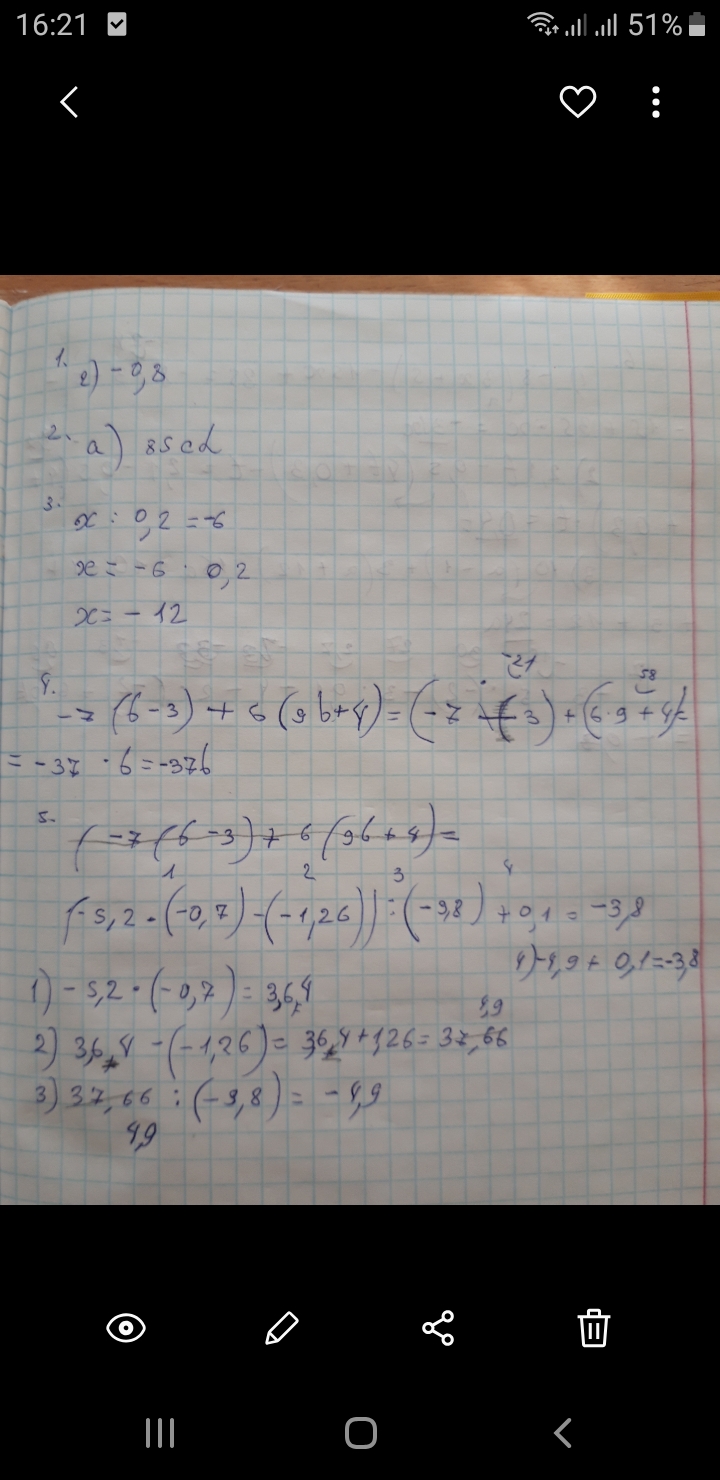 16:21 51%
1. г) -0,8
2. а) 85cd
3. x : 0,2 = -6
x = -6 · 0,2
x = - 12
-21 58
4. -7 (b-3) + 6 (9b+4) = (-7 · 3) + (6·9+4)=
= -37 · b = -37b
5. (-7(b-3)+6(9b+4)=
1 2 3 4
(-5,2 · (-0,7) - (-1,26)) : (-9,8) + 0,1 = -3,8
4) -4,9 + 0,1 = -3,8
1) -5,2 · (-0,7) = 3,6,4
4,9
2) 3,6,4 - (-1,26) = 3,6,4 + 1,26 = 37,66
3) 37,66 : (-9,8) = -4,9
4,9